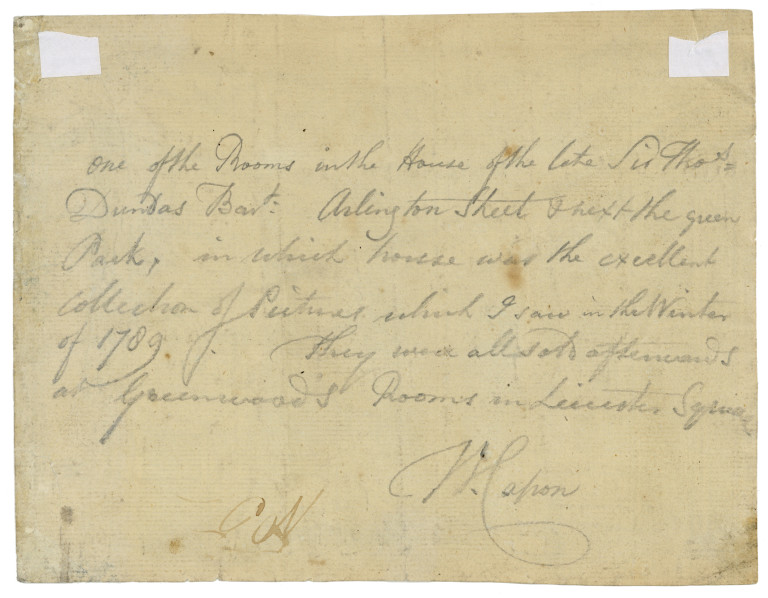 one of the Rooms in the House of the late Sir Thos
Dundas Bart: Arlington Street & next the green
Park, in which house was the excellent
Collection of Pictures which I saw in the Winter
of 1789. They were all sold afterwards
at Greenwood's Rooms in Leicester Square
W. Capon